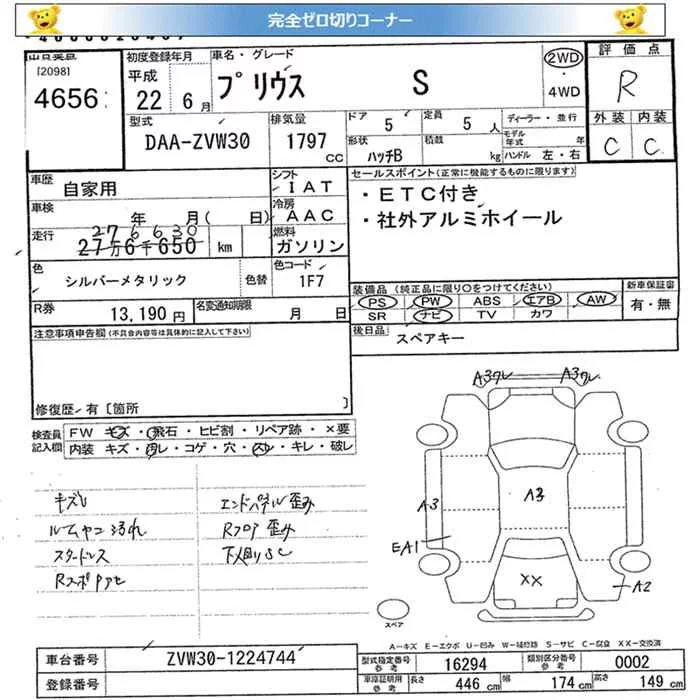 完全ゼロ切りコーナー
[2098]
4656
初度登録年月
平成
22 6月
車名・グレード
プリウス S
2WD
・
4WD
評価点
R
外装 内装
C C
型式
DAA-ZVW30
排気量
1797
CC
ドア
5
定員
5 人
形状
ハッチB
積載
kg
ディーラー・並行
モデル年式 年
ハンドル 左・右
車歴
自家用
シフト
IAT
車検
年 月( 日)
冷房
AAC
走行
276630
27万6千650 km
燃料
ガソリン
色
シルバーメタリック
色替
色コード
1F7
R券
13,190 円
名変通知期限
月 日
セールスポイント(正常に機能するものに限ります)
・ETC付き
・社外アルミホイール
装備品(純正品に限り○をつけてください)
PS PW ABS エアB AW
SR ナビ TV カワ
新車保証書
有・無
後日品
スペアキー
注意事項申告欄(不具合内容等は具体的に記入して下さい)
修復歴 有〔箇所 〕
検査員記入欄
FW キズ・飛石・ヒビ割・リペア跡・×要
内装 キズ・汚レ・コゲ・穴・スレ・キレ・破レ
ルームヤニ汚れ
スタッドレス
エンドパネル歪み
Rフロア歪み
A3 A3
A3
A3
EA1
XX
A2
スペア
A-キズ E-エクボ U-凹み W-補修跡 S-サビ C-腐食 XX-交換済
車台番号
ZVW30-1224744
登録番号
型式指定番号
参考
16294
類別区分番号
参考
0002
車庫証明用
参考
長さ
446 cm
幅
174 cm
高さ
149 cm